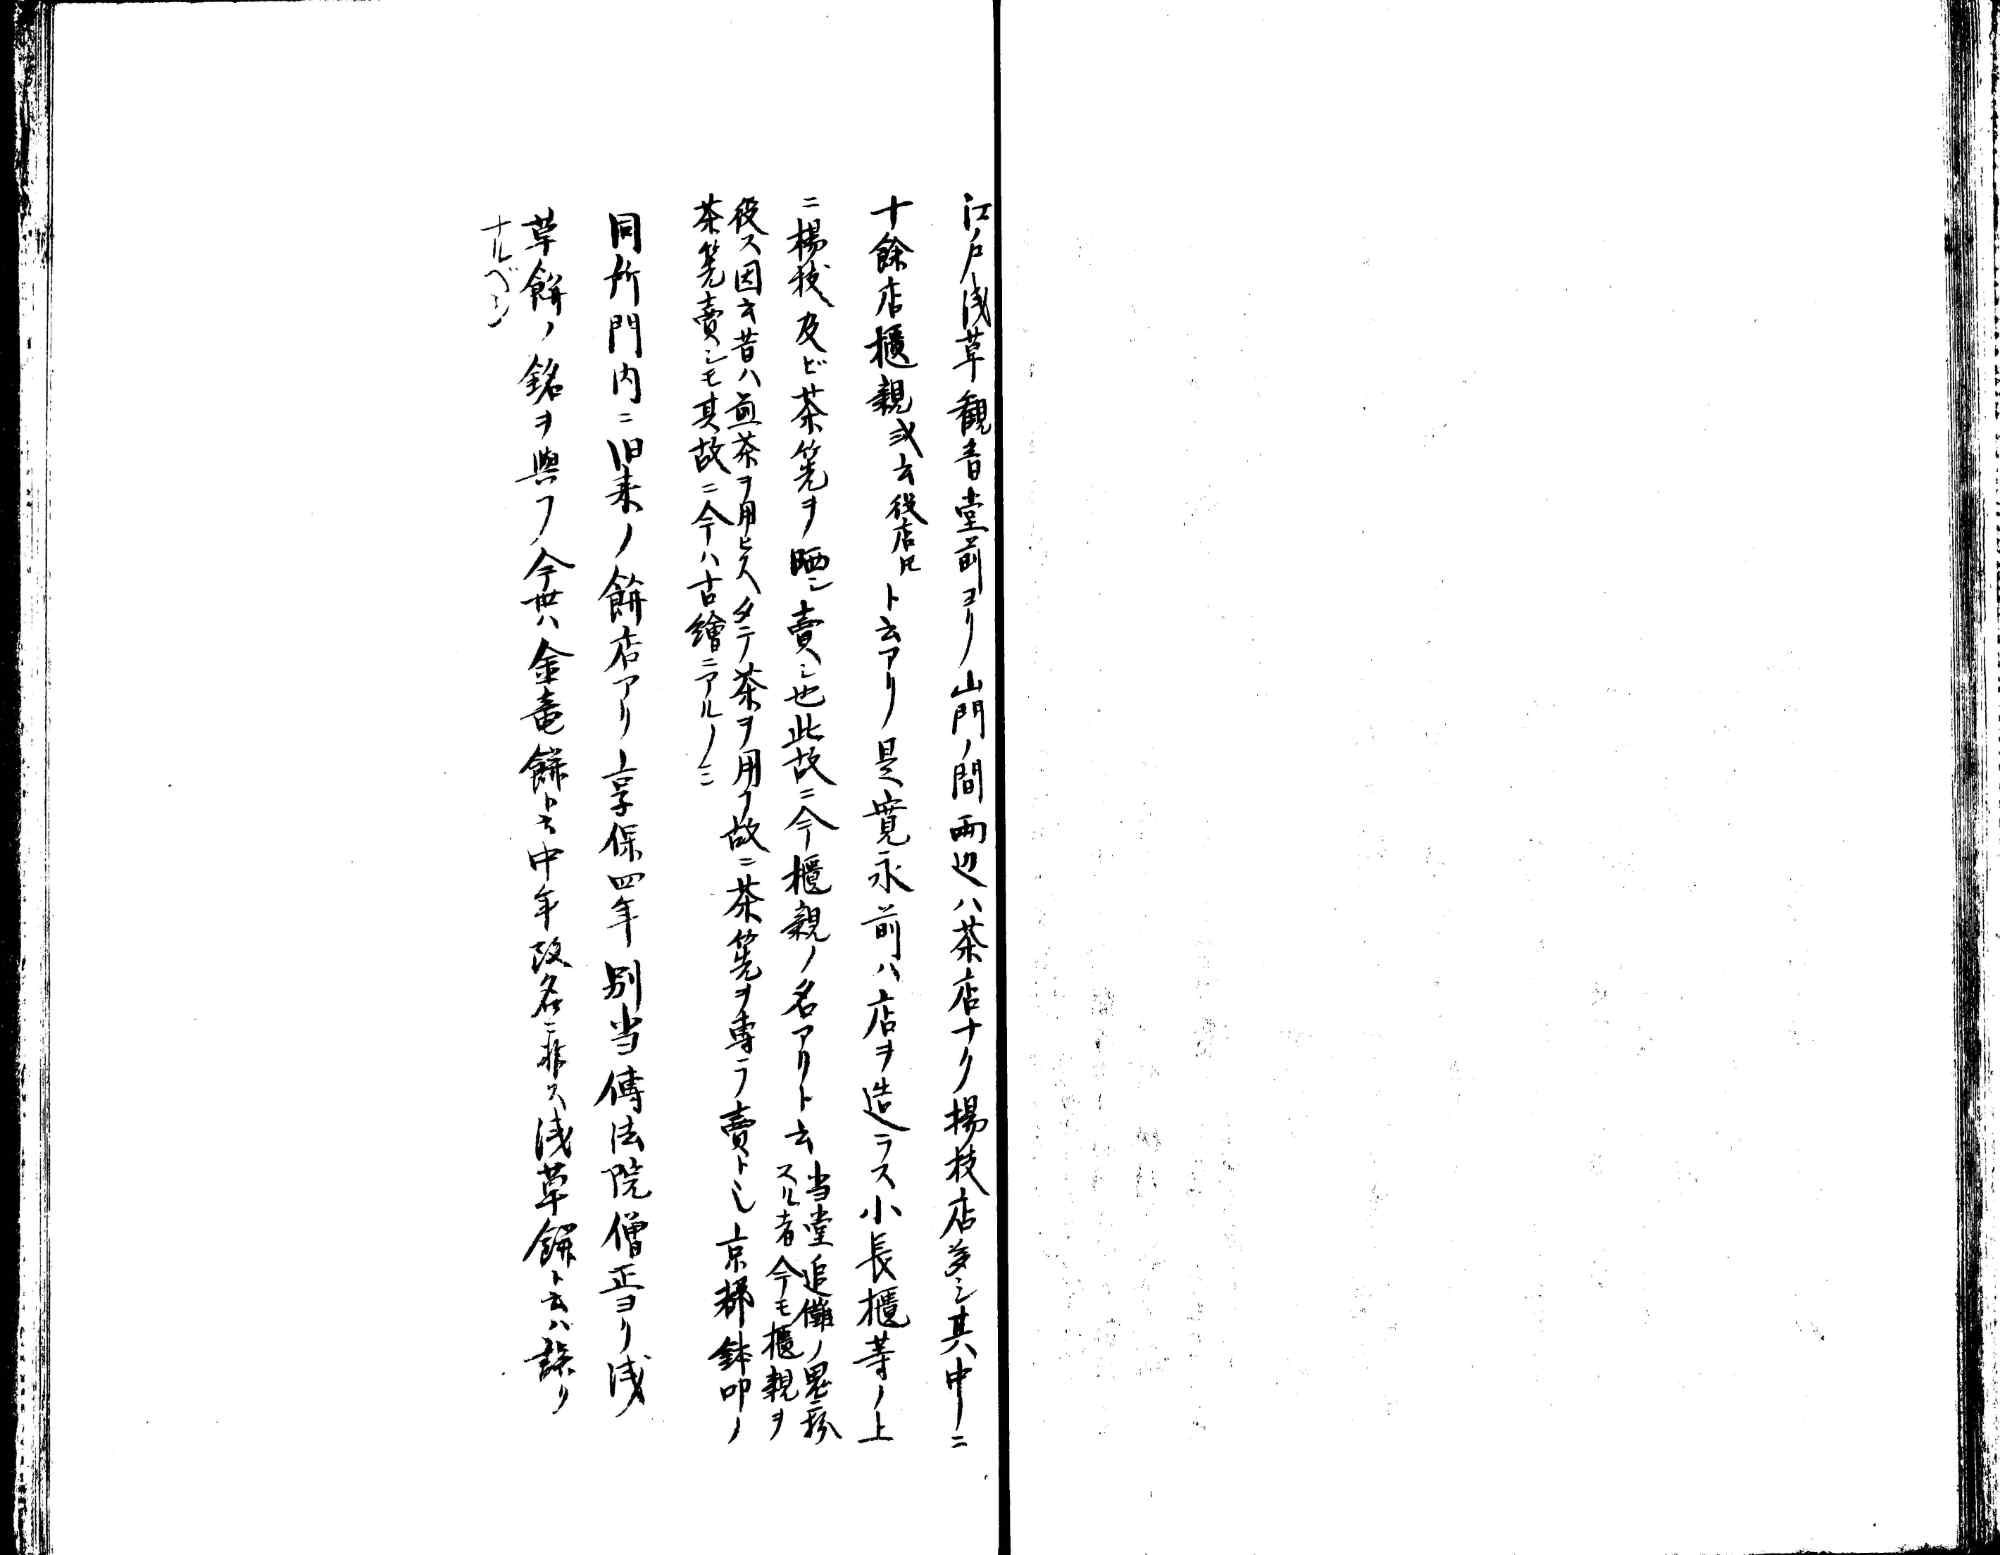 江ノ戸浅草観音堂前ヨリ山門ノ間両辺ハ茶店ナク楊枝店多シ其中ニ
十餘店櫃親或云役店トモト云アリ是寛永前ハ店ヲ造ラス小長櫃等ノ上
ニ楊枝及ビ茶筅ヲ晒シ賣シ也此故ニ今櫃親ノ名アリト云当堂追儺ノ鬼ニ扮
スル者今モ櫃親ヲ
役ス因云昔ハ煎茶ヲ用ヒスタテ茶ヲ用フ故ニ茶筅ヲ専ラ賣トシ京都鉢叩ノ
茶筅賣シモ其故ニ今ハ古繪ニアルノミ
同所門内ニ旧来ノ餅店アリ享保四年別当傳法院僧正ヨリ浅
草餅ノ銘ヲ與フ今世ハ金竜餅ト云中年改名ニ非ス浅草餅ト云ハ誤リ
ナルベシ